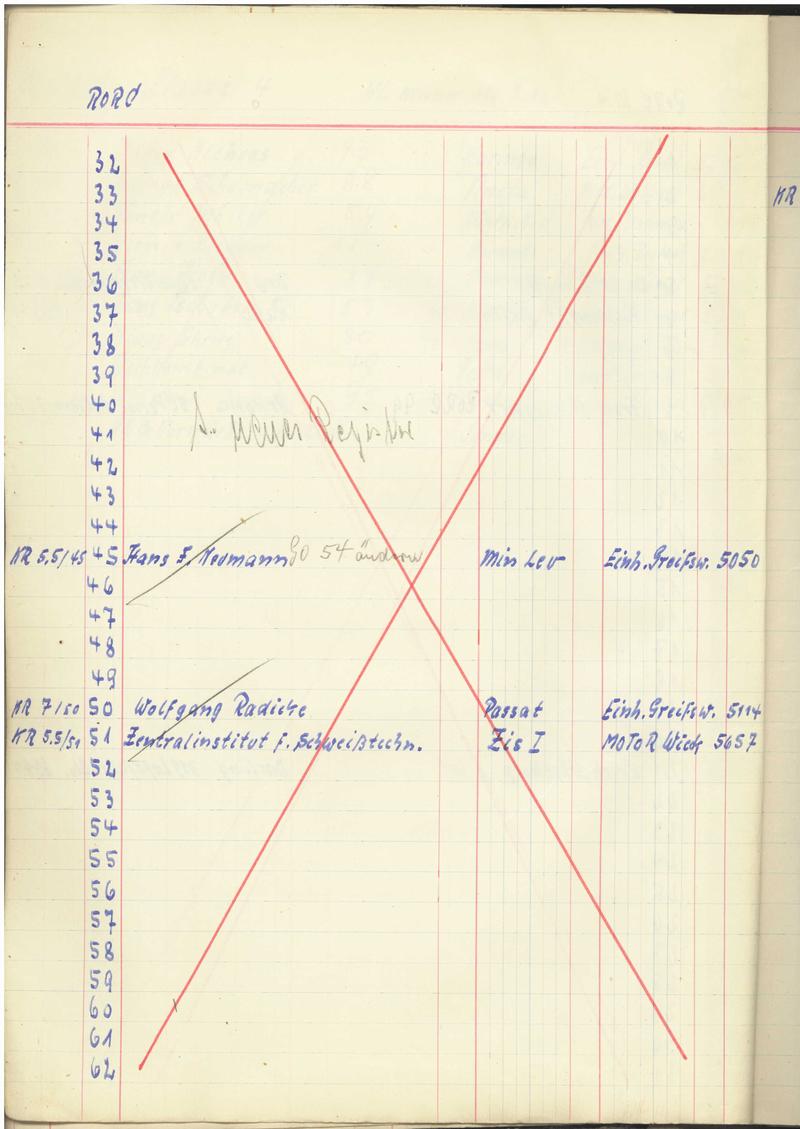 RORC
32
33
34
35
36
37
38
39
40
41 s. neues Register
42
43
44
KR 5,5/45 45 Hans F. Neumann GO 54 ändern Min Lev Einh. Greifsw. 5050
46
47
48
49
KR 7/50 50 Wolfgang Radicke Passat Einh. Greifsw. 5114
KR 5.5/51 51 Zentralinstitut f. Schweißtechn. Zis I MOTOR Wieck 5657
52
53
54
55
56
57
58
59
60
61
62
KR